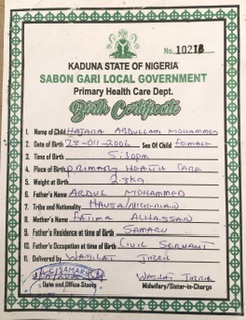 KADUNA STATE OF NIGERIA
No. 10218
SABON GARI LOCAL GOVERNMENT
Primary Health Care Dept.
Birth Certificate
1. Name of Child HAJARA ABDULLAHI MOHAMMED
2. Date of Birth 28-011-2006 Sex Of Child Female
3. Time of Birth 5:30pm
4. Place of Birth PRIMARY HEALTH CARE
5. Weight at Birth 2.8kg
6. Father's Name ABDUL MOHAMMED
7. Tribe and Nationality HAUSA/NIGERIAN
8. Mother's Name FATIMA ALHASSAN
9. Father's Residence at time of Birth SAMARU
10. Father's Occupation at time of Birth CIVIL SERVANT
11. Delivered by WASILAT
SAMARU
Date and Office Stamp
WASILAT
Midwifery/Sister-in-Charge